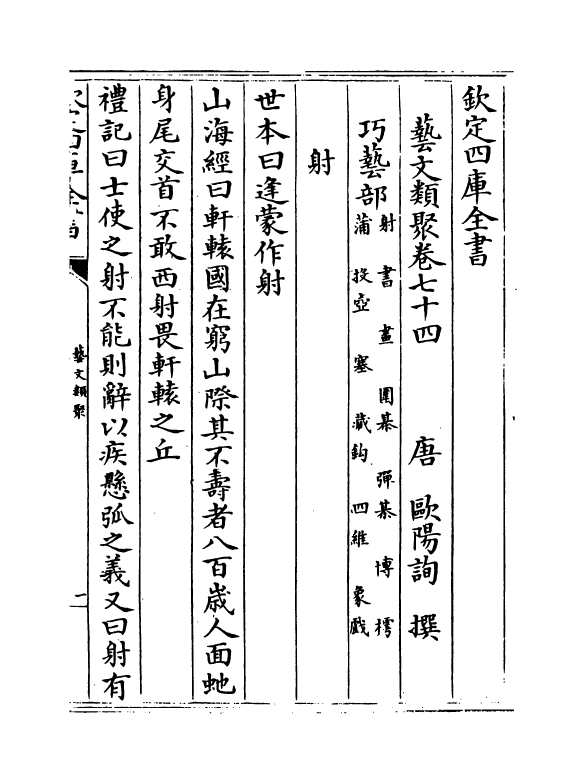 欽定四庫全書
藝文類聚卷七十四 唐 歐陽詢 撰
巧藝部 射 書 畫 圍棊 彈棊 博 樗
蒲 投壺 塞 藏鈎 四維 象戲
射
世本曰逢蒙作射
山海經曰軒轅國在窮山際其不壽者八百歲人面虵
身尾交首不敢西射畏軒轅之丘
禮記曰士使之射不能則辭以疾懸弧之義又曰射有
藝文類聚
二